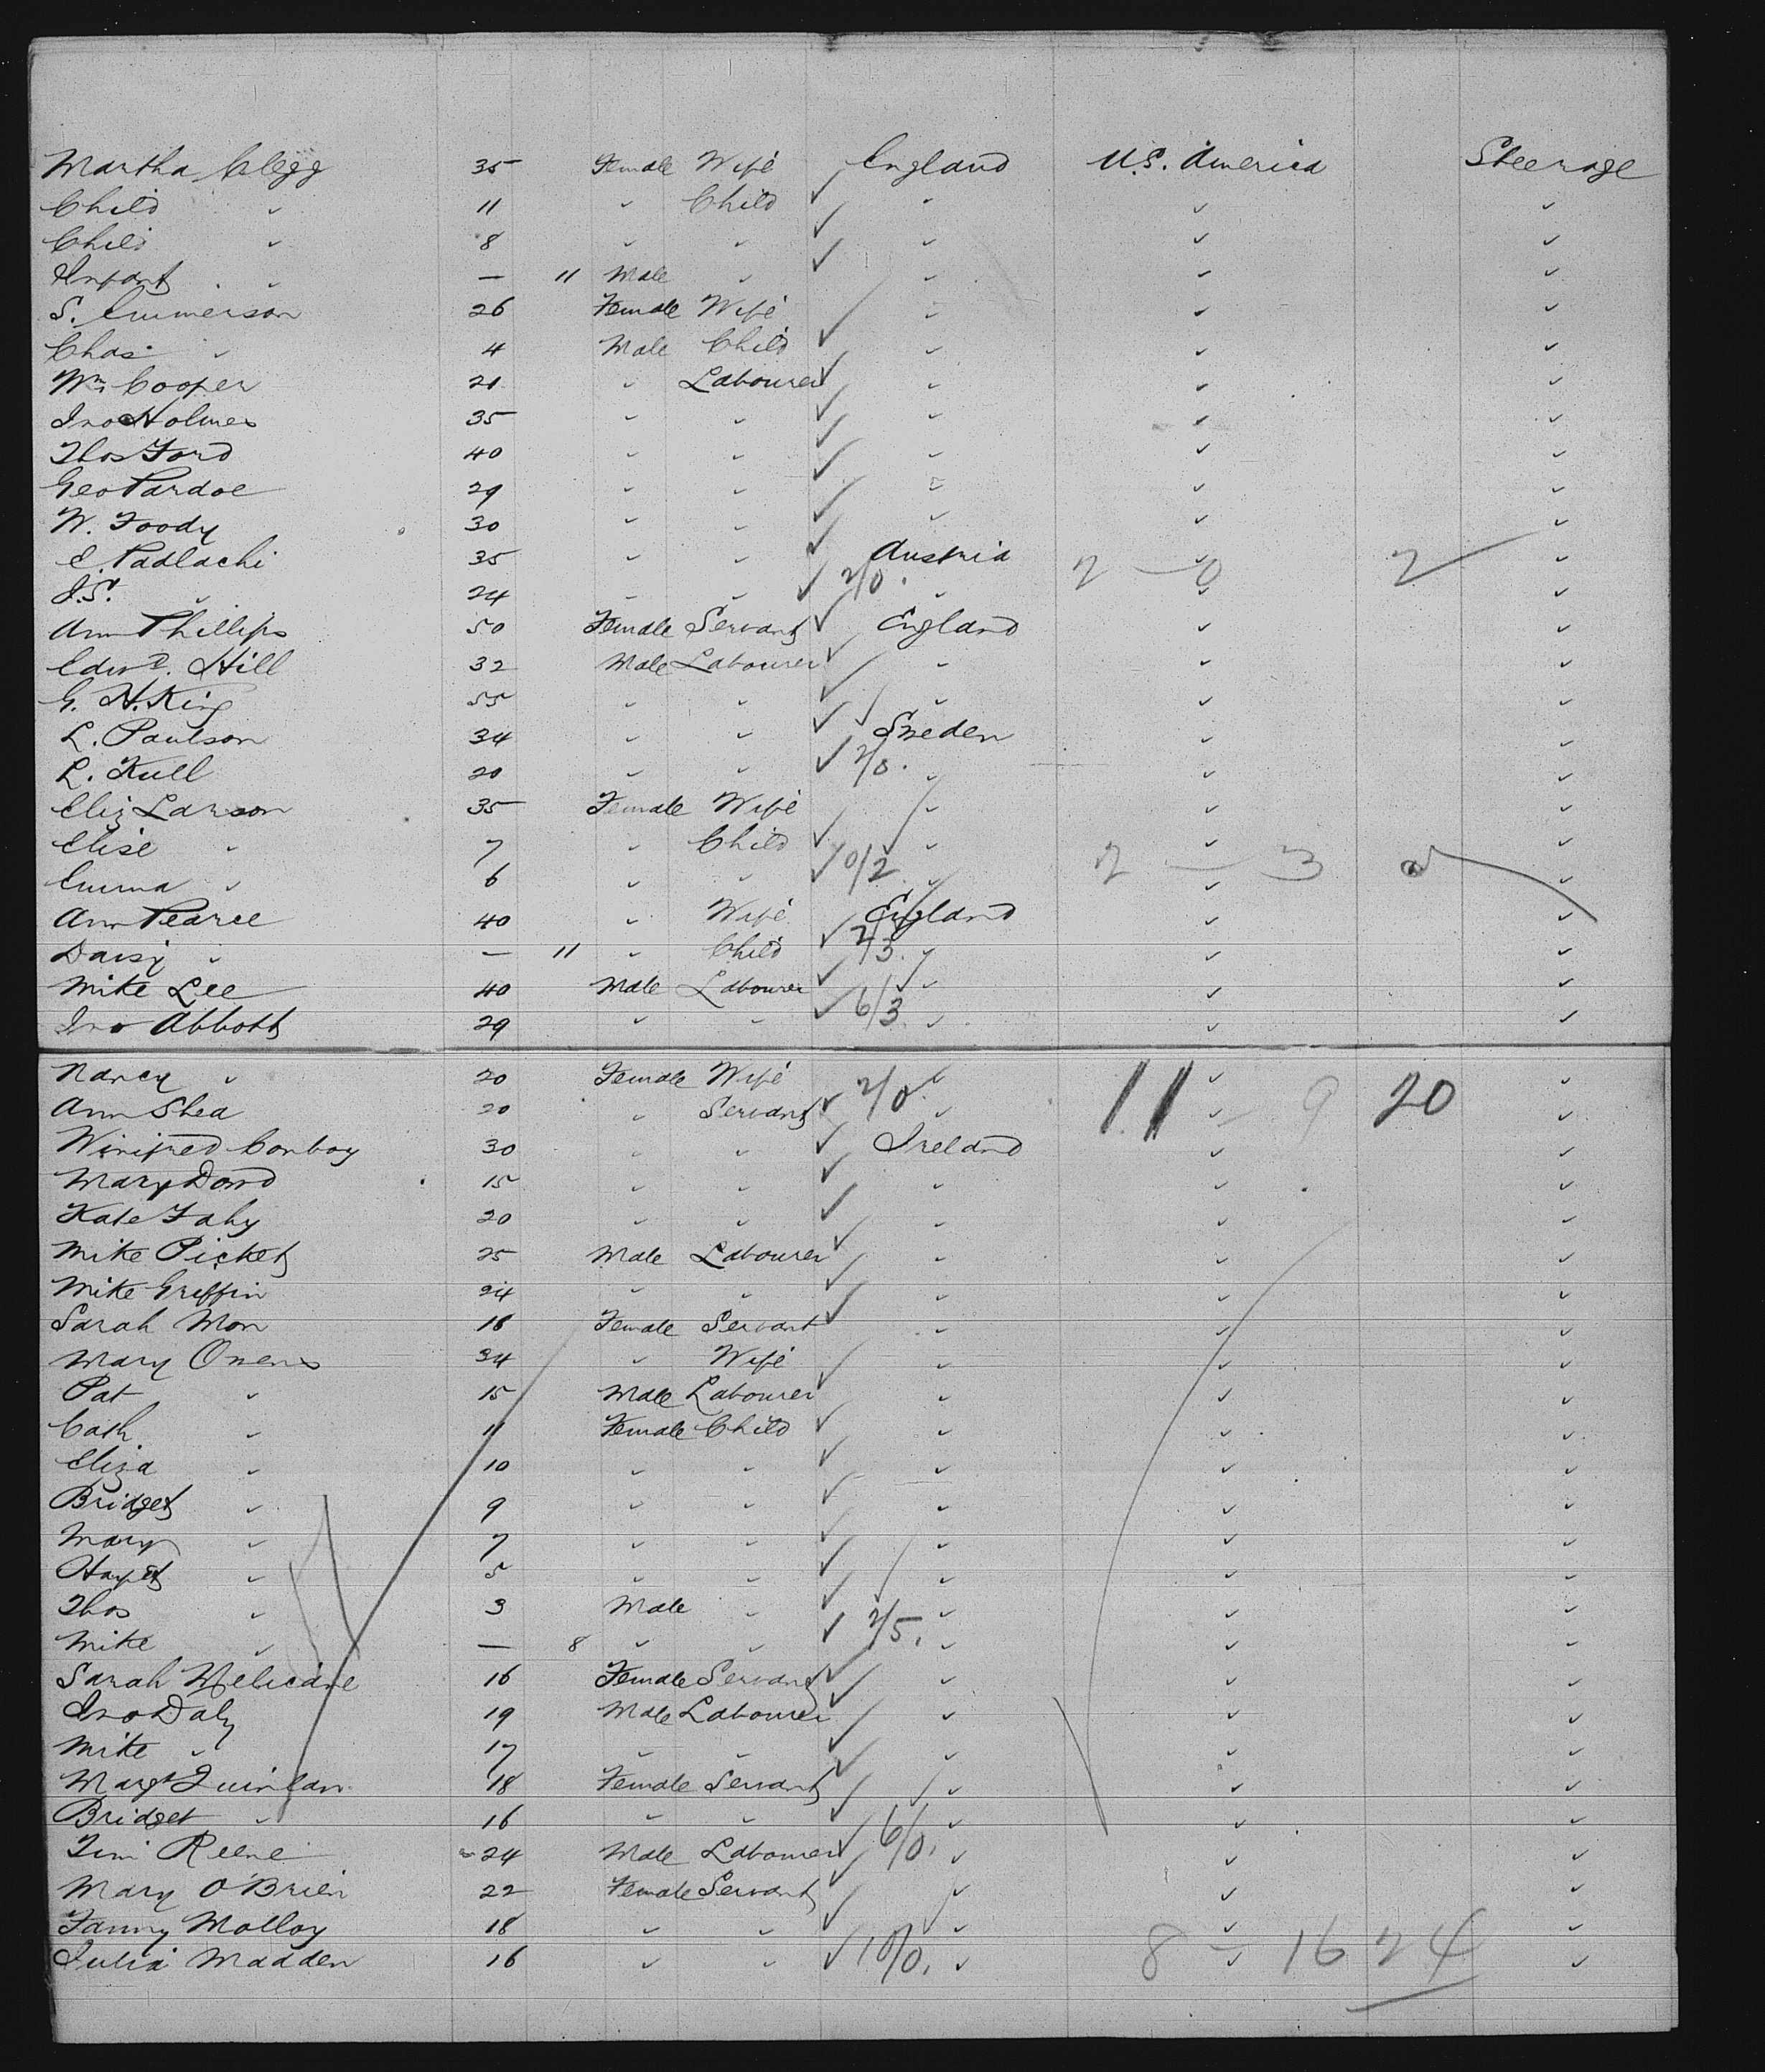 Martha Clegg 35 Female Wife England U.S. America Steerage
Child " 11 " Child " " "
Child " 8 " " " " "
Infant " — 11 Male " " " "
S. Emmerson 26 Female Wife " " "
Chas " 4 Male Child " " "
Wm Cooper 21 " Labourer " " "
Jno Holmes 35 " " " " "
Thos Ford 40 " " " " "
Geo Pardoe 29 " " " " "
W. Foody 30 " " " " "
E. Padlachi 35 " " Austria " " 2 — 0 2
J.S. " 24 " " 2/0. " " "
Ann Phillips 50 Female Servant England " "
Edwd. Hill 32 Male Labourer " " "
G. H. King 55 " " " " "
L. Paulson 34 " " Sweden " "
L. Kull 20 " " 2/0. " " "
Eliz Larson 35 Female Wife " " "
Elise " 7 " Child " " "
Emma " 6 " " 0/2 " " " 2 — 3
Ann Pearce 40 " Wife England " "
Daisy " — 11 " Child 2/3. " " "
Mike Lee 40 Male Labourer " " "
Jno Abbott 29 " " 6/3. " " "
Nancy " 20 Female Wife " " "
Ann Shea 20 " Servant 2/0. " " " 11 — 9 20
Winifred Conboy 30 " " Ireland " "
Mary Dowd 15 " " " " "
Kate Fahy 20 " " " " "
Mike Picket 25 Male Labourer " " "
Mike Griffin 24 " " " " "
Sarah Mon 18 Female Servant " " "
Mary Owens 34 " Wife " " "
Pat " 15 Male Labourer " " "
Cath " 11 Female Child " " "
Eliza " 10 " " " " "
Bridget " 9 " " " " "
Mary " 7 " " " " "
" 5 " " " " "
Thos " 3 Male " " " "
Mike " — 8 " " 2/5. " " "
Sarah 16 Female Servant " " "
Jno Daly 19 Male Labourer " " "
Mike " 17 " " " " "
Margt Quinlan 18 Female Servant " " "
Bridget " 16 " " " " "
Tim Reene 24 Male Labourer 6/0. " " "
Mary O'Brien 22 Female Servant " " "
Fanny Molloy 18 " " " " "
Julia Madden 16 " " 10/0. " " " 8 — 16 24